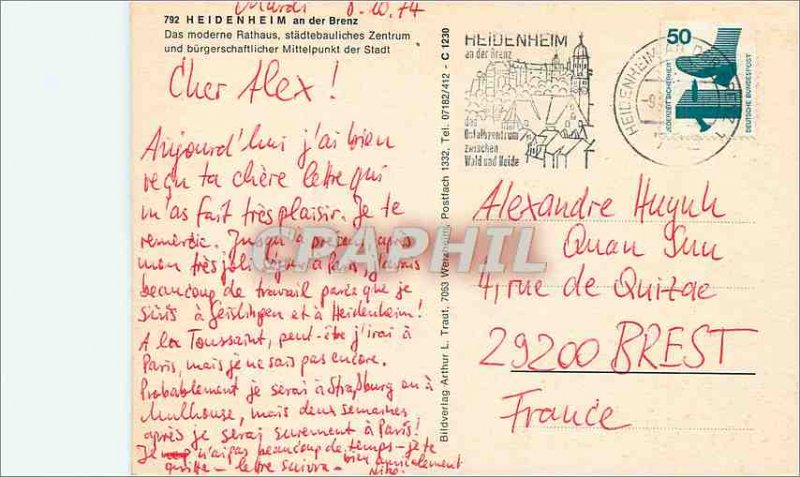 Mardi 8.10.74
792 HEIDENHEIM an der Brenz
Das moderne Rathaus, städtebauliches Zentrum
und bürgerschaftlicher Mittelpunkt der Stadt
Cher Alex!
Aujourd'hui j'ai bien
reçu ta chère lettre qui
m'as fait très plaisir. Je te
remercie. Jusqu'à présent, après
mon très joli séjour à Paris, j'avais
beaucoup de travail parce que je
suis à Geislingen et à Heidenheim!
A la Toussaint, peut-être j'irai à
Paris, mais je ne sais pas encore.
Probablement je serai à Straßburg ou à
Mulhouse, mais deux semaines
après je serai surement à Paris!
Je n'ai pas beaucoup de temps - je te
quitte - lettre suivra - bien amicalement
Bildverlag Arthur L. Traut, 7063 Welzheim, Postfach 1332, Tel. 07182/412 - C 1230
HEIDENHEIM
an der Brenz
das
Einkaufszentrum
zwischen
Wald und Heide
HEIDENHEIM
50
JEDERZEIT SICHERHEIT
DEUTSCHE BUNDESPOST
Alexandre Huynh
Quan Suu
4, rue de
29200 BREST
France
CPAPHIL